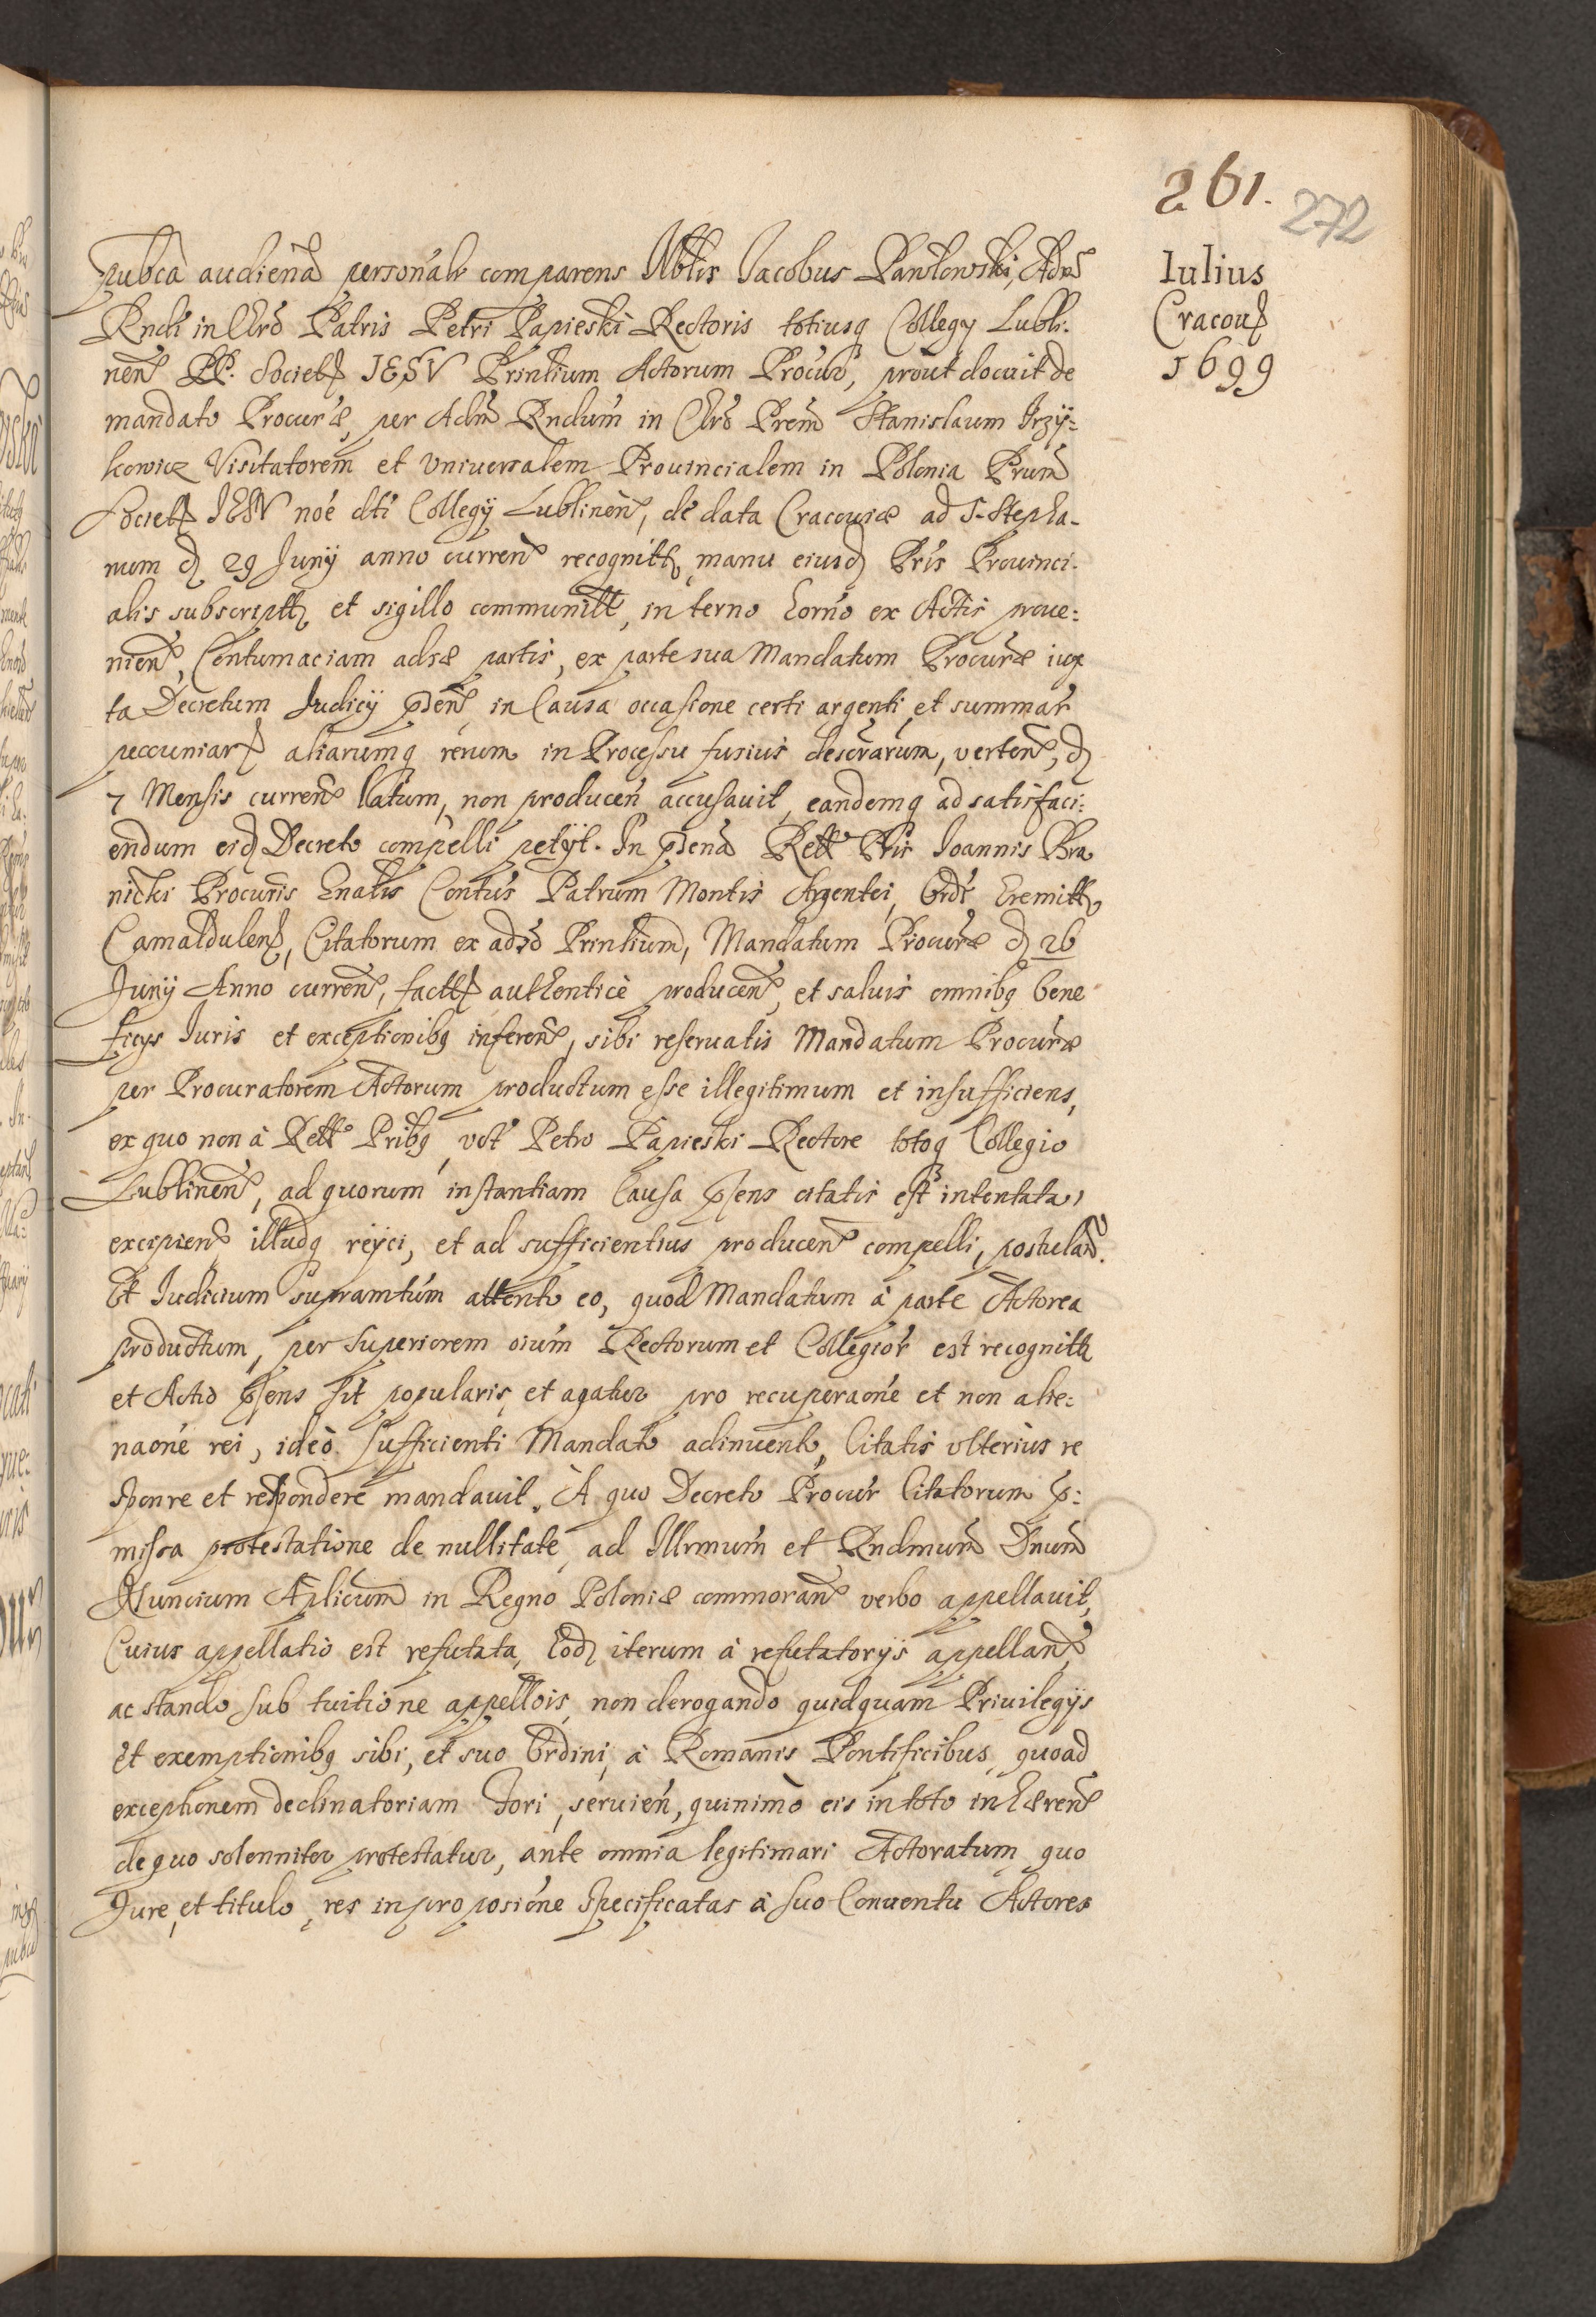 261.
272
Iulius
Cracou
1699
pubca audiena personalr comparens Nblis Iacobus Pawlowski, Adm
Rndi in Chro Patris Petri Papieski Rectoris totiusq Collegy Lubli-
nen PP. Societ IESV Prīntium Actorum Procur, prout docuit de
mandato Procuræ, per Adm Rndum in Chro Prem Stanislaum Irzÿ=
kowicz Visitatorem et Vniuersalem Prouincialem in Polonia Prum
Societ IESV noe dti Collegÿ Lublinen, de data Cracouiæ ad S. Stepha-
num d 29 Junÿ anno curren recognitt, manu eiusd Pris Prouinci-
alis subscriptt, et sigillo communitt, in terno horno ex Actis proue=
nien, Contumaciam adsæ partis, ex parte sua Mandatum Procuræ iux
ta Decretum Iudicÿ pden in Causa occasione certi argenti, et summar
pecuniar aliarumq rerum in Processu fusius descrarum, verten, d
7 Mensis curren llatum, non producen accusauit, eandemq ad satisfaci=
endum eid Decreto compelli petÿt. In pdena Rett Pris Ioannis Bra
nicki Procuris Gnalis Contus Patrum Montis Argentei, Ords Eremitt
Camaldulen, Citatorum ex adso Prīntium, Mandatum Procuræ d 26
Junÿ Anno curren, factt authenticè producen, et saluis omnibq bene
ficys Iuris et exceptionibq inferen, sibi reseruatis Mandatum Procuræ
per Procuratorem Actorum productum esse illegitimum et insufficiens,
ex quo non à Rett Pribq, vdt Petro Papieski Rectore totoq Collegio
Lublinen, ad quorum instantiam Causa psens citatis est intentata,
excipien illudq reÿci, et ad sufficientius producen compelli, postulan.
Et Iudicium supramtum attento eo, quod Mandatum à parte Actorea
productum, per Superiorem oium Rectorum et Collegior est recognitt
et Actio psens sit popularis, et agatur pro recuperaone et non alie=
naone rei, ideò sufficienti Mandato adinuento, Citatis vlterius re
sponre et respondere mandauit. A quo Decreto Procur Citatorum p=
missa protestatione de nullitate, ad Illrmum et Rndmum Dnum
Nuncium Aplicum in Regno Poloniæ commoran verbo appellauit,
Cuius appellatio est refutata, Eod iterum à refutatorÿs appellan,
ac stando sub tuitione appellois, non derogando quidquam Priuilegÿs
et exemptionibq sibi, et suo Ordini, à Romanis Pontificibus, quoad
exceptionem declinatoriam Fori, seruien, quinimò eis in toto inhæren
de quo solenniter protestatur, ante omnia legitimari Actoratum, quo
Jure, et titulo, res in proposione specificatas à suo Conuentu Actores